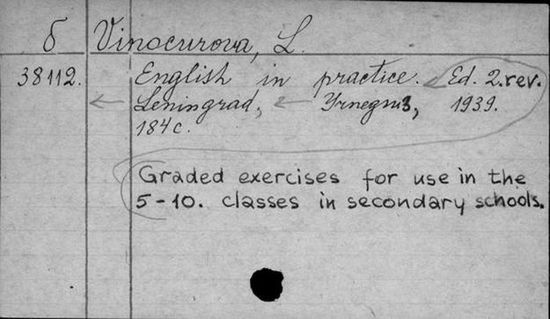 б Vinocurova, L.
38112. English in practice. Ed. 2.rev.
Leningrad, Учпедгиз, 1939.
184 c.
Graded exercises for use in the
5-10. classes in secondary schools.